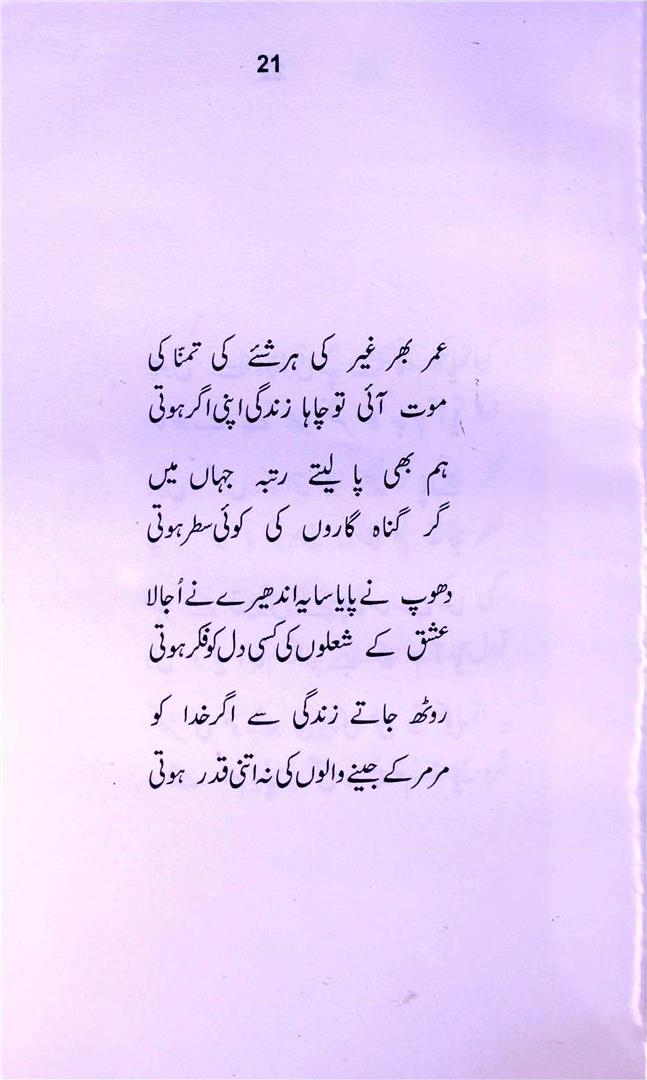 21
عمر بھر غیر کی ہر شئے کی تمنّا کی
موت آئی تو چاہا زندگی اپنی اگر ہوتی
ہم بھی پا لیتے رتبہ جہاں میں
گر گناہ گاروں کی کوئی سطر ہوتی
دھوپ نے پایا سایہ اندھیرے نے اُجالا
عشق کے شعلوں کی کسی دل کو فکر ہوتی
روٹھ جاتے زندگی سے اگر خدا کو
مرمر کے جینے والوں کی نہ اتنی قدر ہوتی